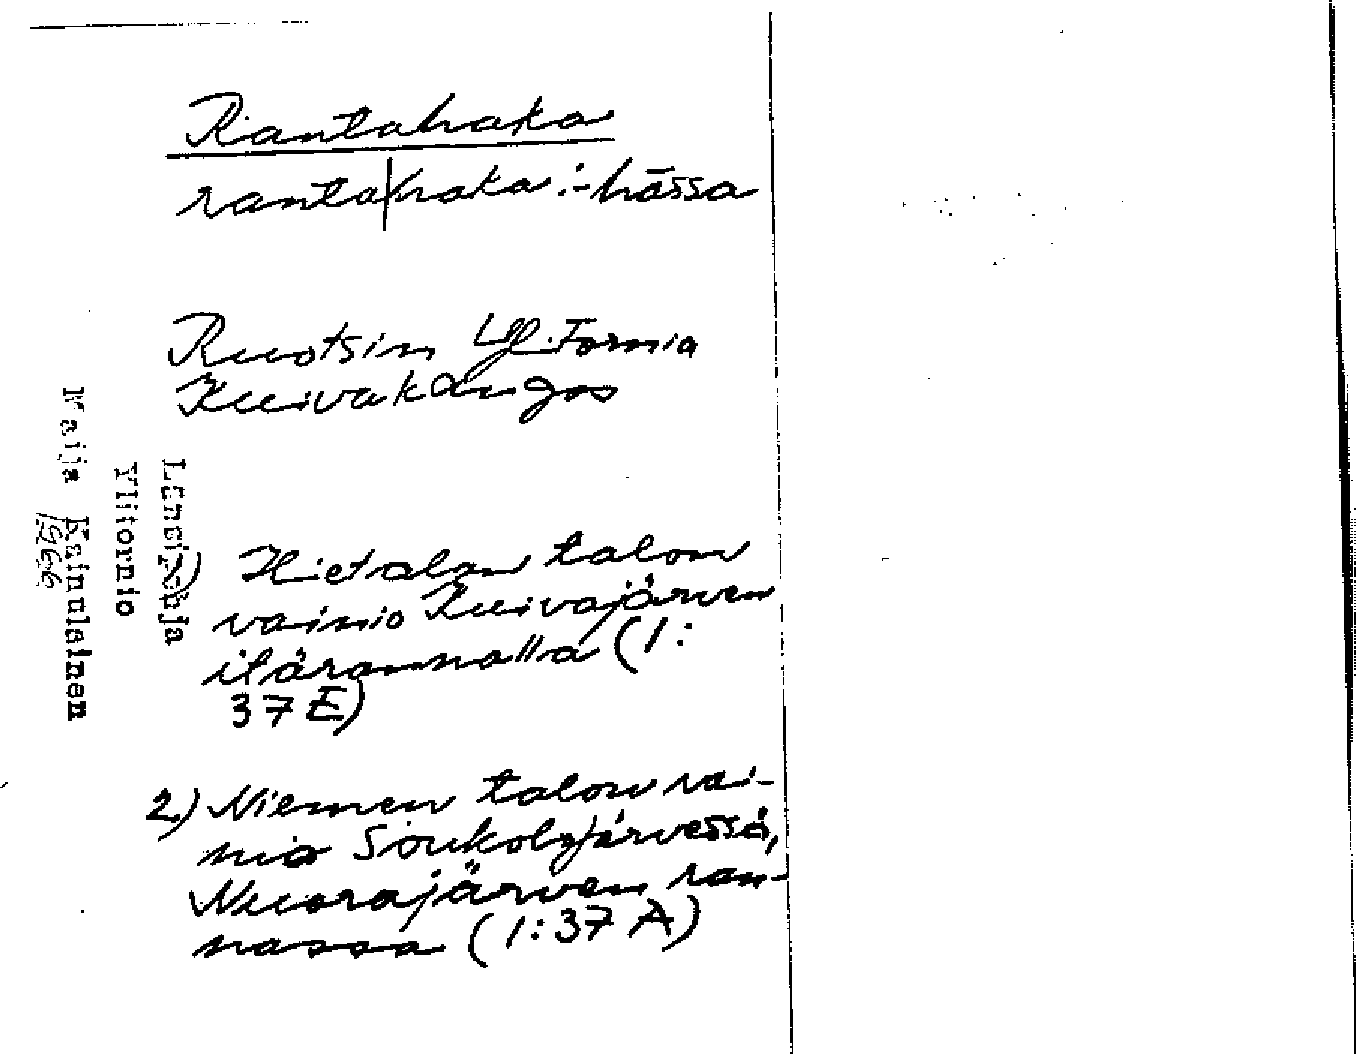 Rantahaka
ranta|haka :-hāssa
Ruotsin Yli-Tornia
Kuivakangas
Länsipohja
Ylitornio
Maija Kainulainen
1966
Hietalan talon
vainio Kuivajärven
itärannalla (1:
37 E)
2.) Niemen talon vai-
nio Soukolojärvessä,
Nuorajärven ran-
nassa (1:37 A)